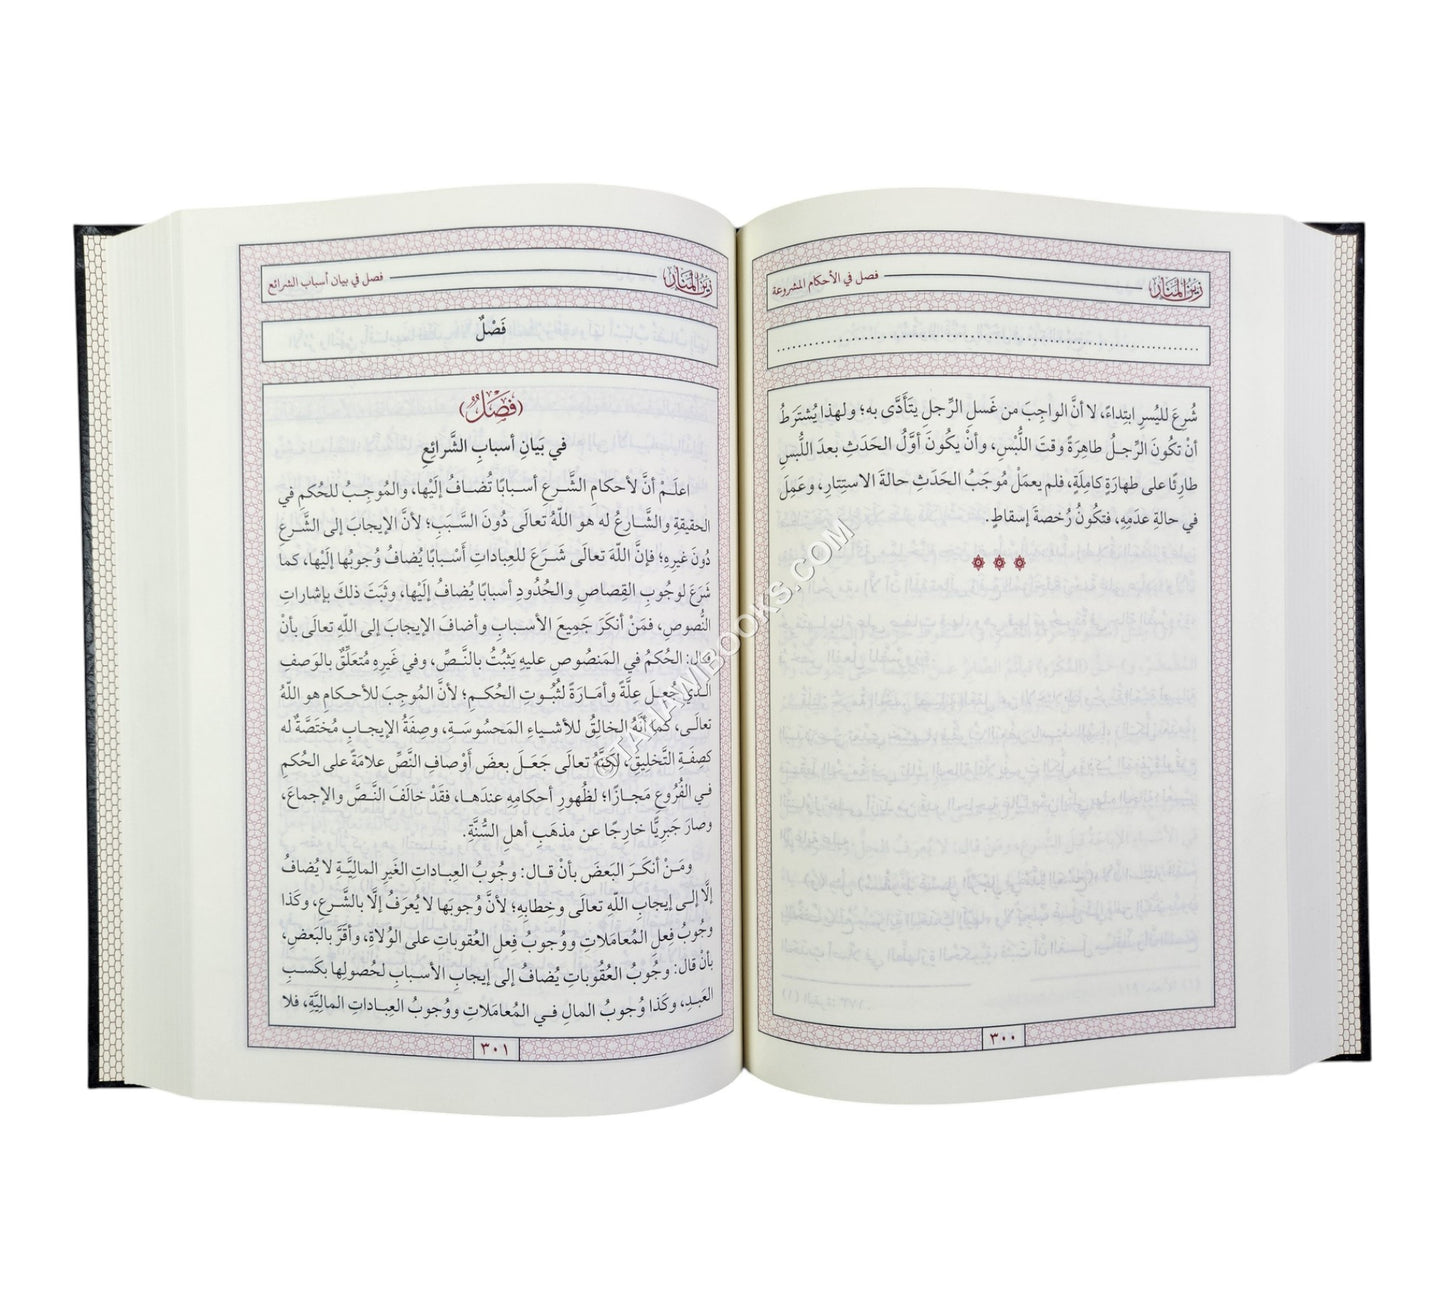 زين المنار
فصل في الأحكام المشروعة
........................................................................
شُرعَ لليُسرِ ابتِداءً، لا أنَّ الواجِبَ من غَسلِ الرِّجلِ يتَأدَّى به؛ ولهذا يُشتَرَطُ
أنْ تكُونَ الرِّجلُ طاهِرَةً وقتَ اللُّبْسِ، وأنْ يكُونَ أوَّلُ الحَدَثِ بعدَ اللُّبسِ
طارِئًا على طهارَةٍ كامِلَةٍ، فلم يعمَلْ مُوجَبُ الحَدَثِ حالةَ الاستِتارِ، وعَمِلَ
في حالةِ عدَمِهِ، فتكُونُ رُخصةَ إسقاطٍ.
٣٠٠
زين المنار
فصل في بيان أسباب الشرائع
فَصْلٌ
(فَصْلٌ)
في بَيانِ أسبابِ الشَّرائعِ
اعلَمْ أنَّ لأحكامِ الشَّرعِ أسبابًا تُضافُ إلَيْها، والمُوجِبُ للحُكمِ في
الحقيقةِ والشَّارعُ له هو اللّٰهُ تَعالَى دُونَ السَّببِ؛ لأنَّ الإيجابَ إلى الشَّرعِ
دُونَ غيرِهِ؛ فإنَّ اللّٰهَ تعالَى شَرَعَ للعِباداتِ أسْبابًا يُضافُ وُجوبُها إلَيْها، كما
شَرَعَ لوجُوبِ القِصاصِ والحُدُودِ أسبابًا يُضافُ إلَيْها، وثَبَتَ ذلكَ بإشاراتِ
النُّصوصِ، فمَنْ أنكَرَ جَميعَ الأسبابِ وأضافَ الإيجابَ إلى اللّٰهِ تعالَى بأنْ
قالَ: الحُكمُ في المَنصُوصِ عليهِ يَثبُتُ بالنَّصِّ، وفي غَيرِهِ مُتعَلِّقٌ بالوَصفِ
الَّذي جُعِلَ عِلَّةً وأمَارَةً لثُبُوتِ الحُكمِ؛ لأنَّ المُوجِبَ للأحكامِ هو اللّٰهُ
تعالَى، كما أنَّهُ الخالِقُ للأشياءِ المَحسُوسَةِ، وصِفَةُ الإيجابِ مُختَصَّةٌ له
كصِفَةِ التَّخليقِ، لكنَّهُ تعالَى جَعَلَ بعضَ أوْصافِ النَّصِّ علامَةً على الحُكمِ
في الفُروعِ مَجازًا؛ لظُهورِ أحكامِهِ عندَها، فقَدْ خالَفَ النَّصَّ والإجماعَ،
وصارَ جَبرِيًّا خارِجًا عن مذهَبِ أهلِ السُّنَّةِ.
ومَنْ أنكَرَ البَعضَ بأنْ قالَ: وجُوبُ العِباداتِ الغَيرِ المالِيَّةِ لا يُضافُ
إلَّا إلى إيجابِ اللّٰهِ تعالَى وخِطابِهِ؛ لأنَّ وُجوبَها لا يُعرَفُ إلَّا بالشَّرعِ، وكَذا
وجُوبُ فعلِ المُعامَلاتِ ووُجوبُ فعلِ العُقوباتِ على الوُلاةِ، وأقَرَّ بالبَعضِ،
بأنْ قالَ: وجُوبُ العُقُوباتِ يُضافُ إلى إيجابِ الأسبابِ لحُصولِها بكَسبِ
العَبدِ، وكَذا وُجوبُ المالِ في المُعامَلاتِ ووُجوبُ العِباداتِ المالِيَّةِ، فلا
٣٠١
© TAYAMBOOKS.COM